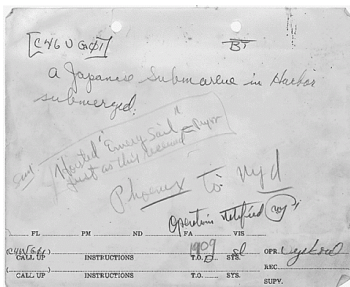 BT
a Japanese Submarine in Harbor
submerged.
Hoisted "Emerg Sail"
just as this received
Phoenix To: Nyd
Operation notified
FL PM ND FA VIS
1909
CALL UP INSTRUCTIONS T.O. SYS. OPR.
REC.
CALL UP INSTRUCTIONS T.O. SYS. SUPV.